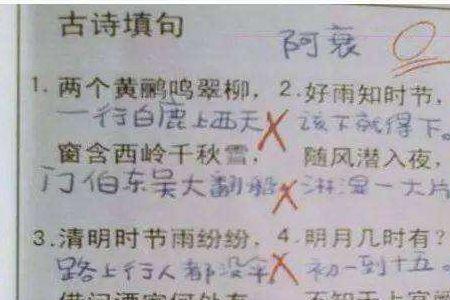 古诗填句
阿衰
1. 两个黄鹂鸣翠柳，
一行白鹿上西天
窗含西岭千秋雪，
门伯东吴大翻船
2. 好雨知时节，
该下就得下。
随风潜入夜，
淋湿一大片
3. 清明时节雨纷纷，
路上行人都没伞
借问酒家何处有
4. 明月几时有？
初一到十五。
不知天上宫